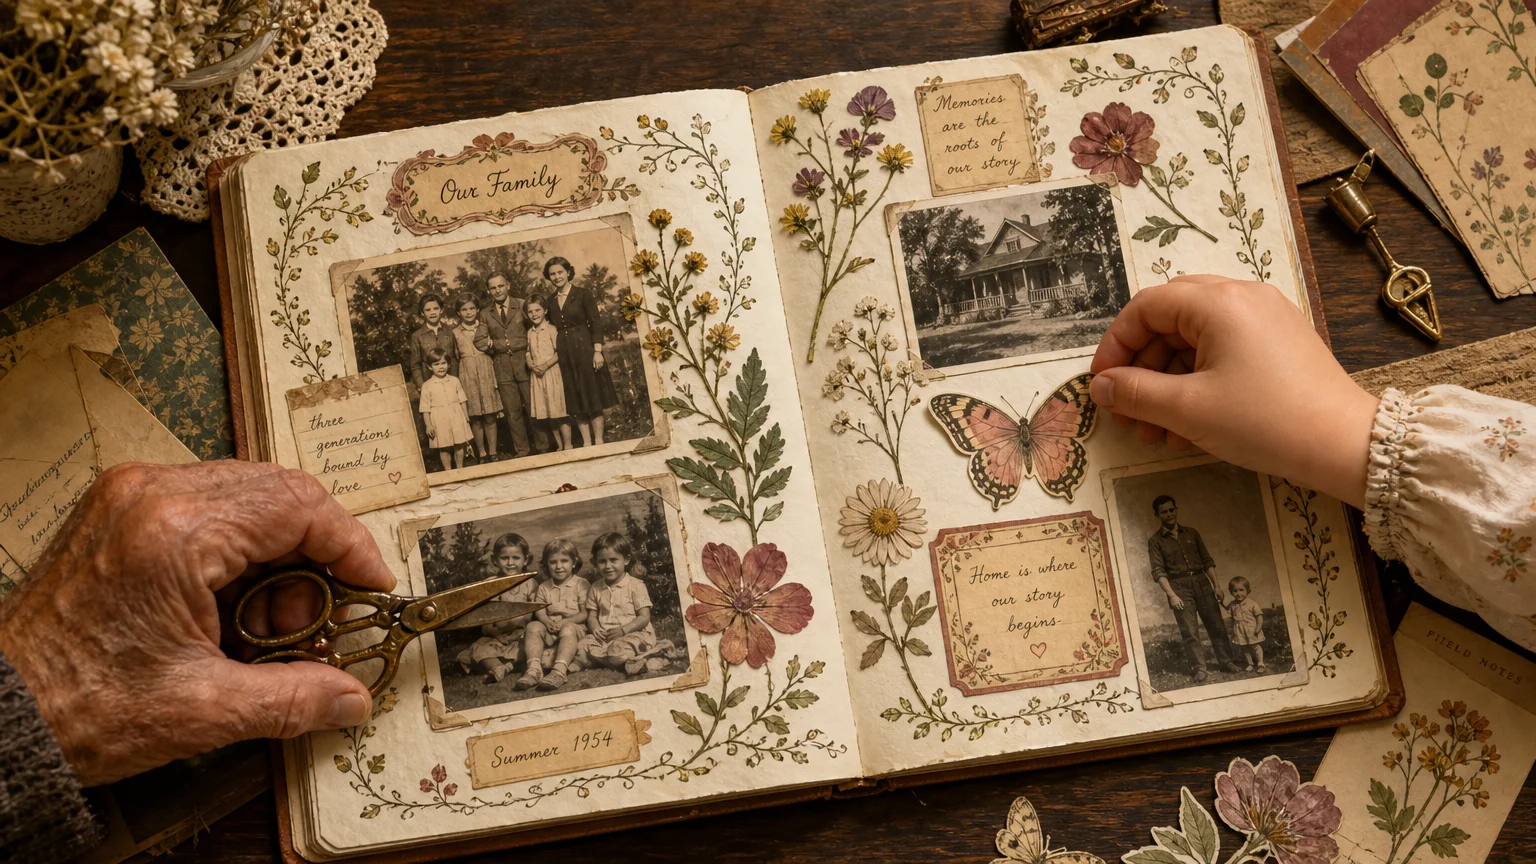 Our Family
three
generations
bound by
love ♡
Summer 1954
Memories
are the
roots of
our story
Home is where
our story
begins-
♡
FIELD NOTES